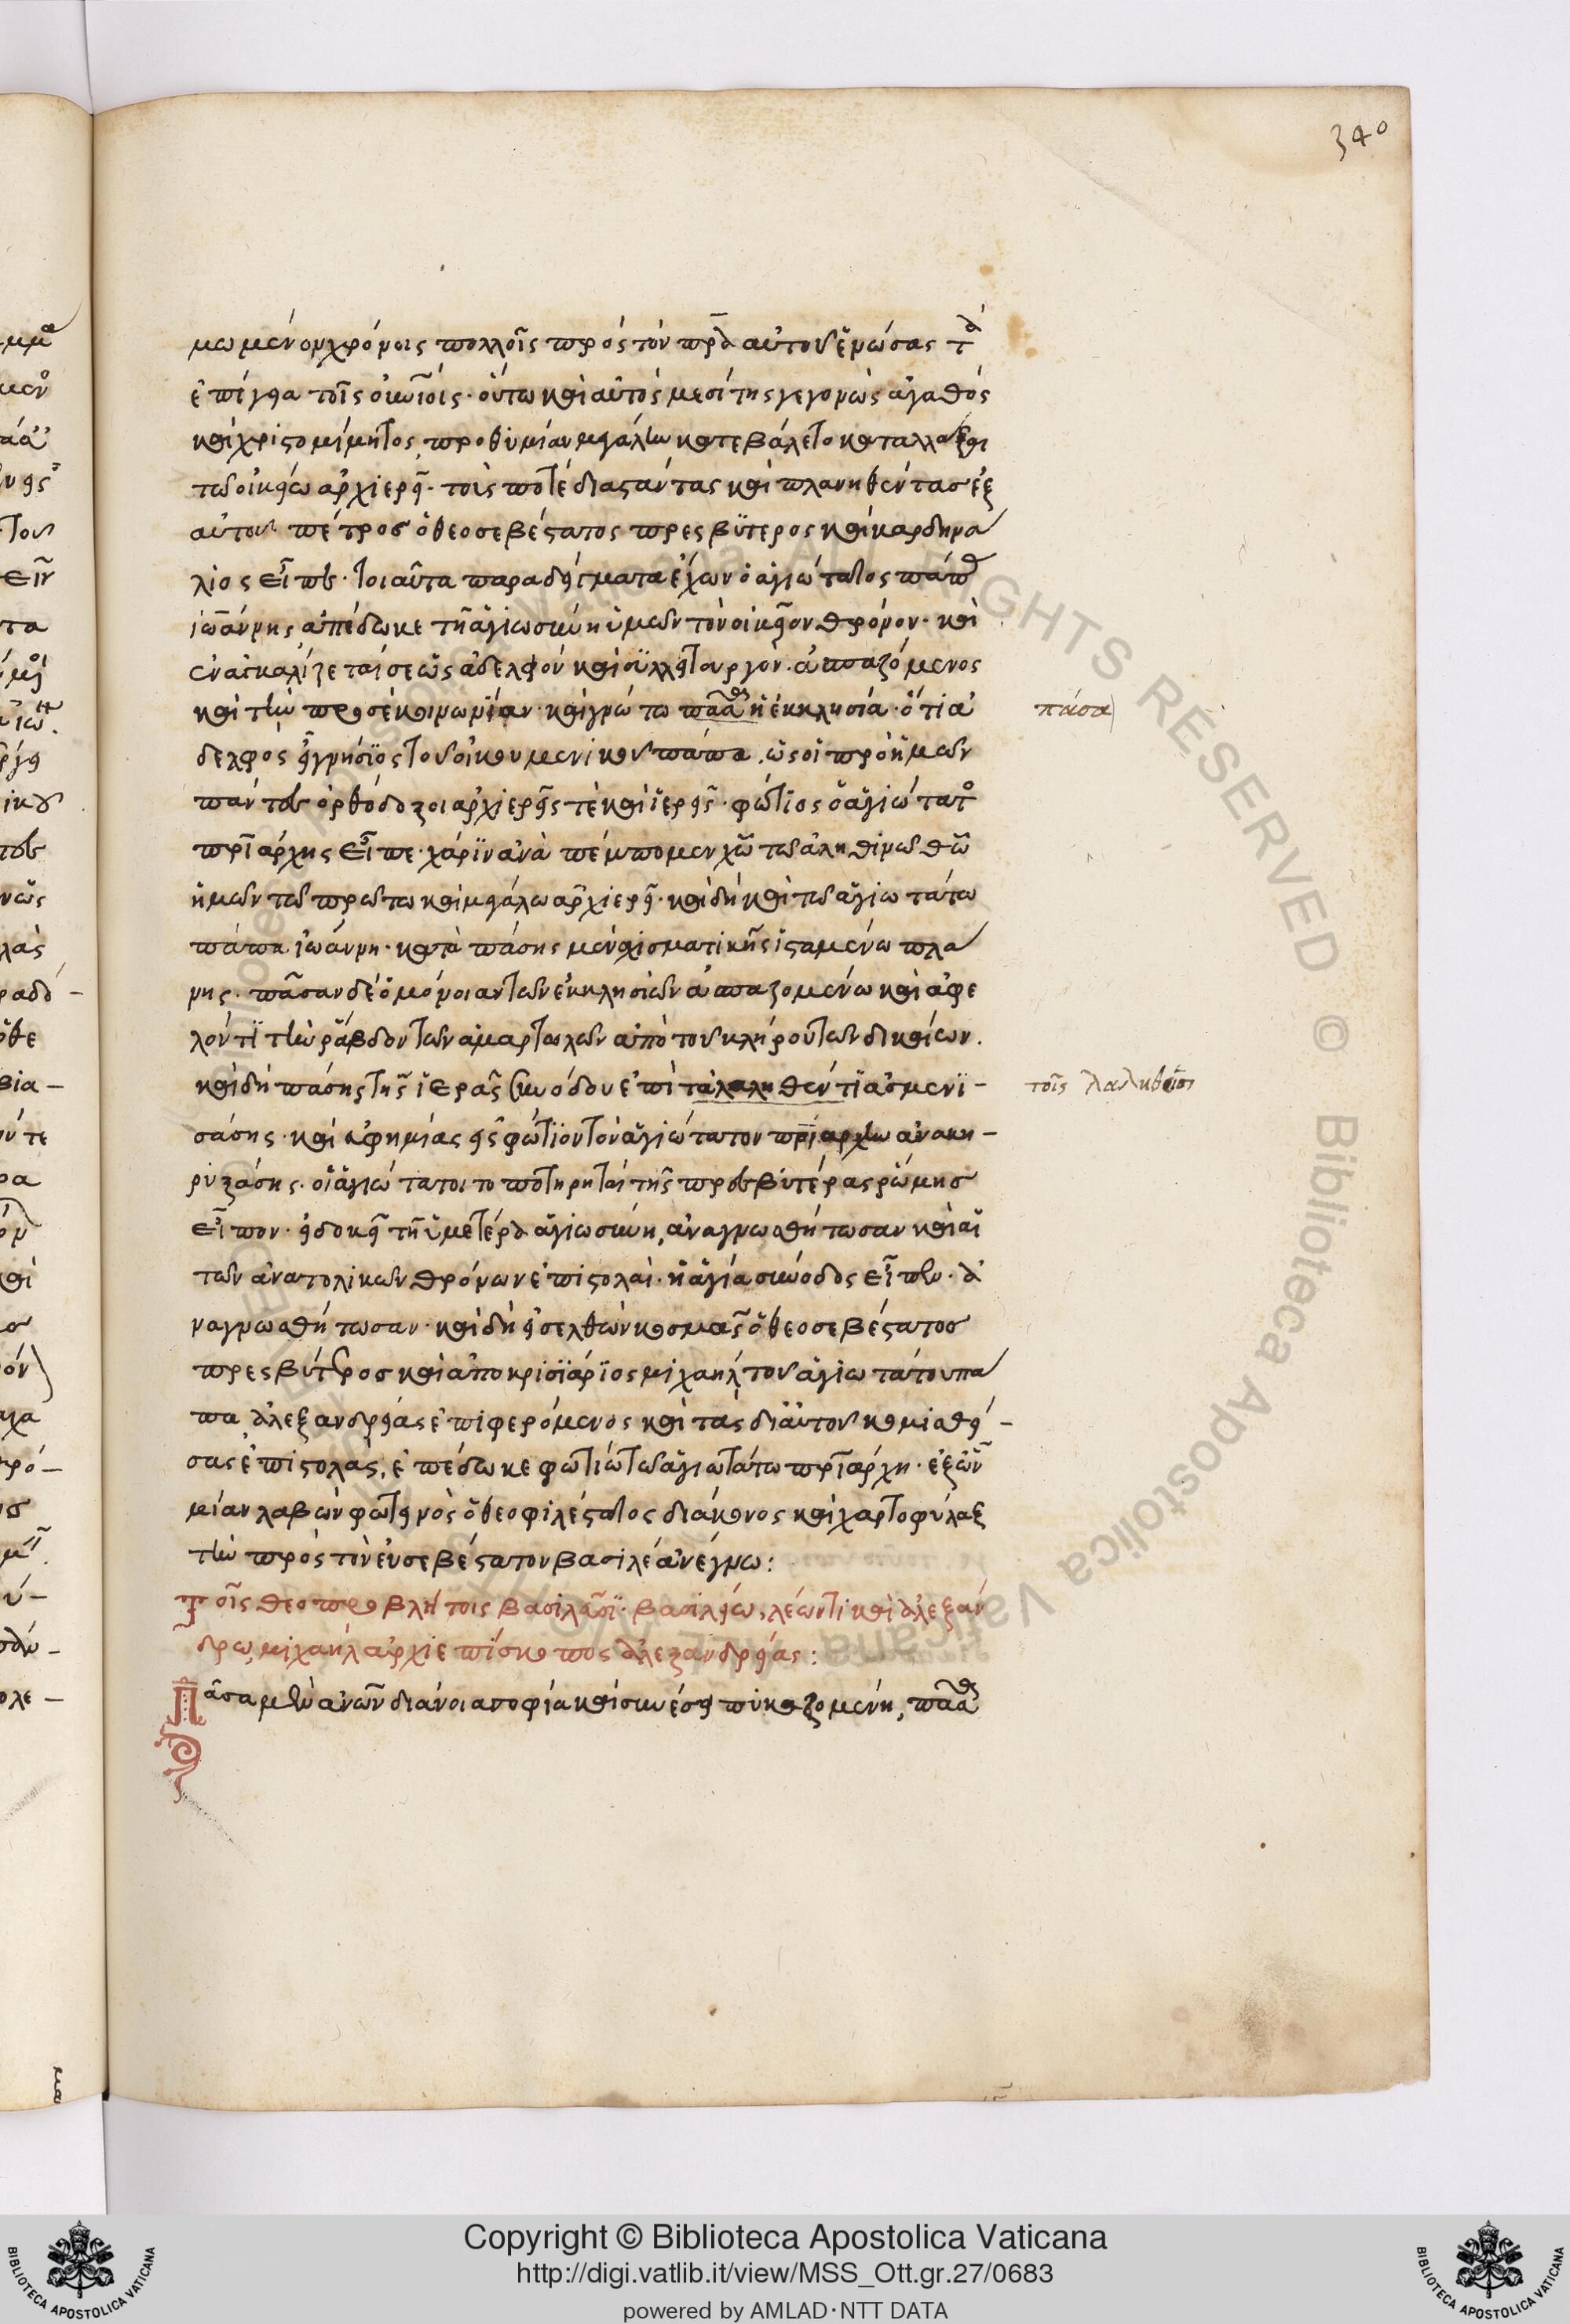 340
μωμένον χρόνοις πολλοῖς πρὸς τὸν πρα αὐτοῦ ἑνώσας τὰ
ἐπίγεια τοῖς οὐνίοις· οὕτω καὶ αὐτὸς μεσίτης γεγονὼς ἀγαθὸς
καὶ χριστομίμητος, προθυμίαν μεγάλην κατεβάλετο καταλλάξαι
τῶ οἰκείω ἀρχιερεῖ· τοὺς ποτὲ διαστάντας καὶ πλανηθέντας ἐξ
αὐτοῦ· πέτρος ὁ θεοσεβέστατος πρεσβύτερος καὶ καρδηνα
λιος εἶπεν· τοιαῦτα παραδείγματα ἔχων ὁ ἁγιώτατος πάπας
ἰωάννης ἀπέδωκε τῆ ἁγιωσύνη ὑμῶν τὸν οἰκεῖον θρόνον· καὶ
ἐναγκαλίζεταί σε ὡς ἀδελφὸν καὶ συλλειτουργόν· ἀσπαζόμενος
καὶ τὴν πρὸς σὲ κοινωνίαν· καὶ γνώτω πᾶσα ἡ ἐκκλησία· ὅτι ἀ
πάσα
δελφὸς εἶ γνήσιος τοῦ οἰκουμενικοῦ πάπα. ὡς οἱ πρὸ ἡμῶν
πάντες ὀρθόδοξοι ἀρχιερεῖς τὲ καὶ ἱερεῖς· φώτιος ὁ ἁγιώτατος
πριάρχης εἶπε· χάριν ἀναπέμπομεν χῶ τῶ ἀληθινῶ θῶ
ἡμῶν τῶ πρώτω καὶ μεγάλω ἀρχιερεῖ· καὶ δὴ καὶ τῶ ἁγιωτάτω
πάπα ἰωάννη· κατὰ πάσης μὲν σχισματικῆς ἱσταμένω πλά
νης· πᾶσαν δὲ ὁμόνοιαν τῶν ἐκκλησιῶν ἀσπαζομένω καὶ ἀφε
λόντι τὴν ῥάβδον τῶν ἁμαρτωλῶν ἀπὸ τοῦ κλήρου τῶν δικαίων.
καὶ δὴ πάσης τῆς ἱερᾶς συνόδου ἐπὶ τὰ λαληθέντι ἀσμενι-
τοῖς λαληθεῖσι
σάσης· καὶ εὐφημίας εἰς φώτιον τὸν ἁγιώτατον πριάρχην ἀνακη-
ρυξάσης· οἱ ἁγιώτατοι τοποτηρηταὶ τῆς πρεσβυτέρας ῥώμης
εἶπον· εἰ δοκεῖ τῆ ὑμετέρα ἁγιωσύνη, ἀναγνωσθήτωσαν καὶ αἱ
τῶν ἀνατολικῶν θρόνων ἐπιστολαί· ἡ ἁγία σύνοδος εἶπεν· ἀ
ναγνωσθήτωσαν· καὶ δὴ εἰσελθὼν κοσμᾶς ὁ θεοσεβέστατος
πρεσβύτερος καὶ ἀποκρισιάριος μιχαὴλ τοῦ ἁγιωτάτου πά
πα ἀλεξανδρείας ἐπιφερόμενος καὶ τὰς δι' αὐτοῦ κομισθεί-
σας ἐπιστολάς, ἐπέδωκε φωτίω τῶ ἁγιωτάτω πριάρχη· ἐξ ὧν
μίαν λαβὼν φωτεινὸς ὁ θεοφιλέστατος διάκονος καὶ χαρτοφύλαξ
τὴν πρὸς τὸν εὐσεβέστατον βασιλέα ἀνέγνω:
Τοῖς θεοπροβλήτοις βασιλεῦσι· βασιλείω, λέοντι καὶ ἀλεξάν
δρω, μιχαὴλ ἀρχιεπίσκοπος ἀλεξανδρείας:
Πᾶσα μὲν ἀνῶν διάνοια σοφία καὶ συνέσει πυκαζομένη, πᾶσα
Copyright © Biblioteca Apostolica Vaticana
http://digi.vatlib.it/view/MSS_Ott.gr.27/0683
powered by AMLAD·NTT DATA